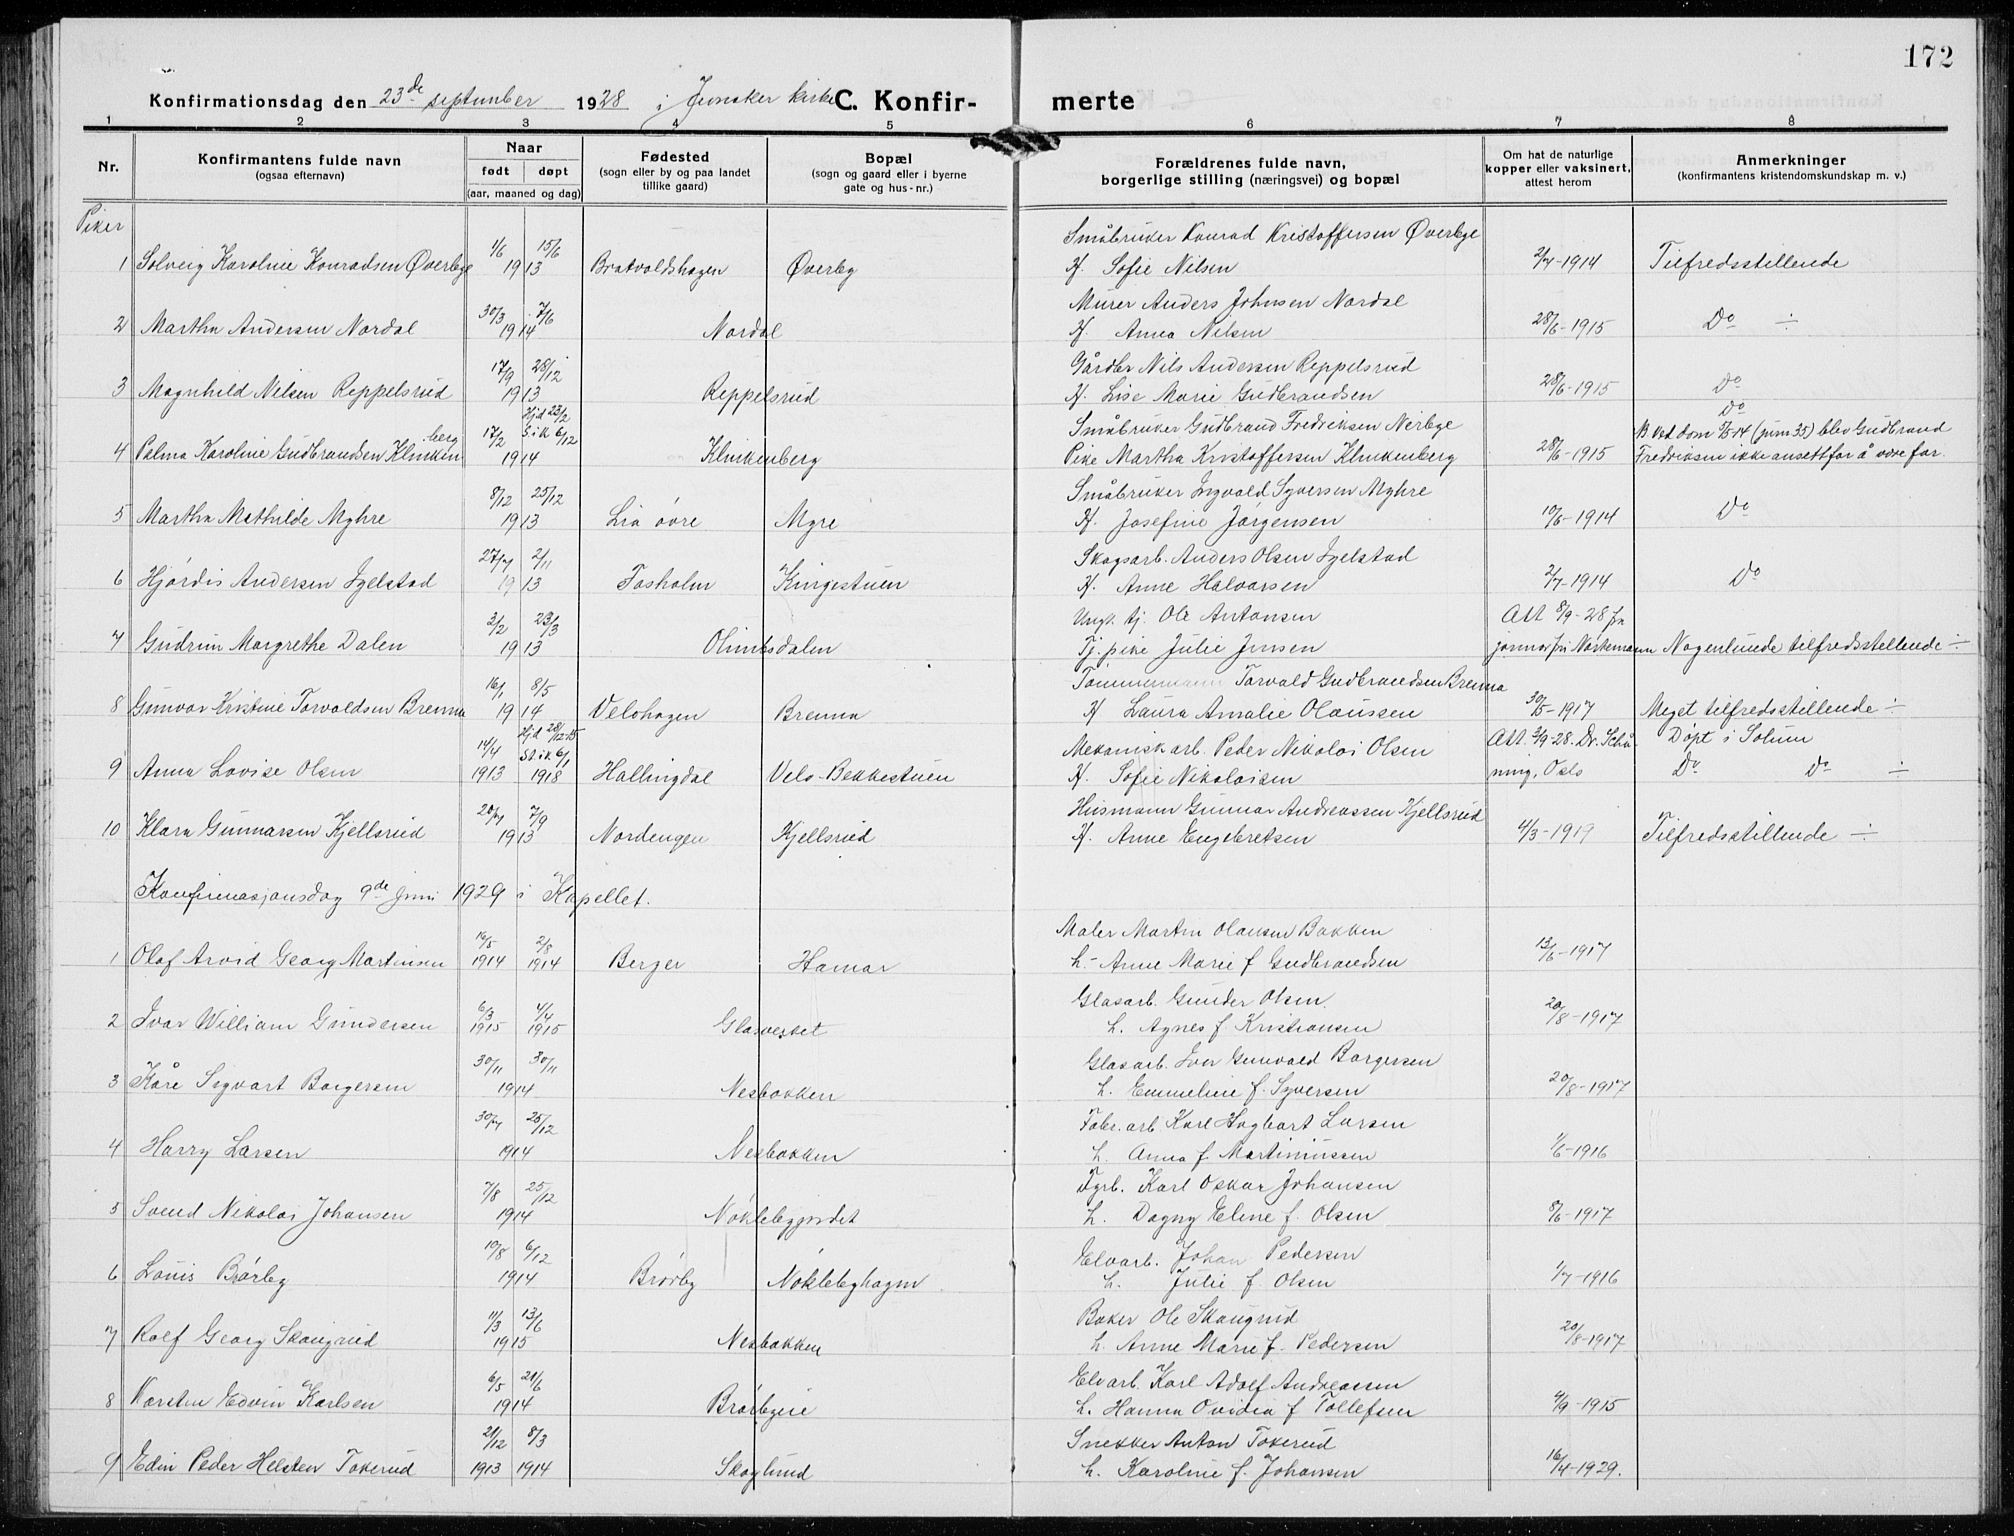 172
Konfirmationsdag den 23de september 1928 i Jevnaker kirke C. Konfir- merte
1 2 3 4 5 6 7 8
Nr.
Konfirmantens fulde navn
(ogsaa efternavn)
Naar
født døpt
(aar, maaned og dag)
Fødested
(sogn eller by og paa landet
tillike gaard)
Bopæl
(sogn og gaard eller i byerne
gate og hus-nr.)
Forældrenes fulde navn,
borgerlige stilling (næringsvei) og bopæl
Om hat de naturlige
kopper eller vaksinert,
attest herom
Anmerkninger
(konfirmantens kristendomskundskap m. v.)
Piker
Småbruker Konrad Kristoffersen Øverbye
1 Solveig Karoline Konradsen Øverbye 1/6 15/6 1913 Bratvoldshagen Øverby H. Sofie Nilsen 2/7-1914 Tilfredsstillende
Murer Anders Johnsen Nordal
2 Martha Andersen Nordal 30/3 7/6 1914 Nordal H. Anna Nilsen 28/6-1915 Do ÷
Gårdbr Nils Andersen Reppelsrud
3 Magnhild Nilsen Reppelsrud 17/9 28/12 1913 Reppelsrud H. Lise Marie Gudbrandsen 28/6-1915 Do
Småbruker Gudbrand Fredriksen Nerbye Do
4 Palma Karoline Gudbrandsen Klinkenberg 17/2 Hjd 23/2 S.i.k 6/12 1914 Klinkenberg Pike Martha Kristoffersen Klinkenberg 28/6-1915 Ved dom 9/5-14 (jurn 35) blev Gudbrand
Fredriksen ikke ansett for å være far.
Småbruker Ingvald Syversen Myhre
5 Martha Mathilde Myhre 8/12 25/12 1913 Lia øvre Myre H. Josefine Jørgensen 10/6-1914 Do
Skogsarb. Anders Olsen Igelstad
6 Hjørdis Andersen Igelstad 27/7 2/11 1913 Fosholm Kingestuen H. Anne Halvorsen 2/7-1914 Do
Ungk. tj. Ole Antonsen Att 8/9-28 fra
7 Gudrun Margrethe Dalen 2/2 23/3 1913 Olimbsdalen Tj. pike Julie Jensen jormor fru Nørkemann Nogenlunde tilfredsstillende ÷
Tømmermann Torvald Gudbrandsen Brenna
8 Gunvor Kristine Torvaldsen Brenna 16/1 8/5 1914 Velohagen Brenna H Laura Amalie Olaussen 30/5-1917 Meget tilfredsstillende ÷
Mekanisk arb. Peder Nikolai Olsen Att. 3/9-28. Dr. Schø- Døpt i Solum
9 Anna Lovise Olsen 14/4 1913 Hjd 28/12-15 St. i k 6/1 1918 Hallingdal Velo-Bekkestuen H. Sofie Nikolaisen ning, Oslo Do Do ÷
Husmann Gunnar Andreassen Kjellsrud
10 Klara Gunnarsen Kjellsrud 20/7 7/9 1913 Nordengen Kjellsrud H. Anne Engebretsen 4/3-1919 Tilfredsstillende ÷
Konfirmasjonsdag 9de juni 1929 i Kapellet.
Maler Martin Olausen Bakken
1 Olaf Arvid Georg Martinsen 16/5 1914 2/8 1914 Berger Hamar h.- Anne Marie f Gudbrandsen 13/6-1917
Glasarb. Gunder Olsen
2 Ivar William Gundersen 6/3 1915 4/4 1915 Glasverket h. Agnes f. Kristiansen 20/8-1917
Glasarb. Iver Gunvald Borgersen
3 Kåre Sigvart Borgersen 30/11 30/11 1914 Nesbakken h. Emmeline f. Syversen 20/8-1917
Fabr. arb. Karl Hagbart Larsen
4 Harry Larsen 30/7 25/12 1914 Nesbakken h. Anna f Martiniussen 1/6-1916
Fyrb. Karl Oskar Johansen
5 Svend Nikolai Johansen 7/8 25/12 1914 Nøklebyjordet h. Dagny Eline f. Olsen 8/6-1917
Elvarb. Johan Pedersen
6 Louis Brørby 10/8 6/12 1914 Brørby Nøklebyhagen h. Julie f. Olsen 1/7-1916
Baker Ole Skougrud
7 Rolf Georg Skougrud 11/3 13/6 1915 Nesbakken h. Anne Marie f. Pedersen 20/8-1917
Elvarb. Karl Adolf Andreassen
8 Karsten Edvin Karlsen 6/5 21/6 1914 Brørbyeie h. Hanna Ovidia f Tollefsen 4/9-1915
Snekker Anton Tokerud
9 Edin Peder Helsten Tokerud 21/12 1913 8/3 1914 Skoglund h. Karoline f. Johansen 16/4-1929.